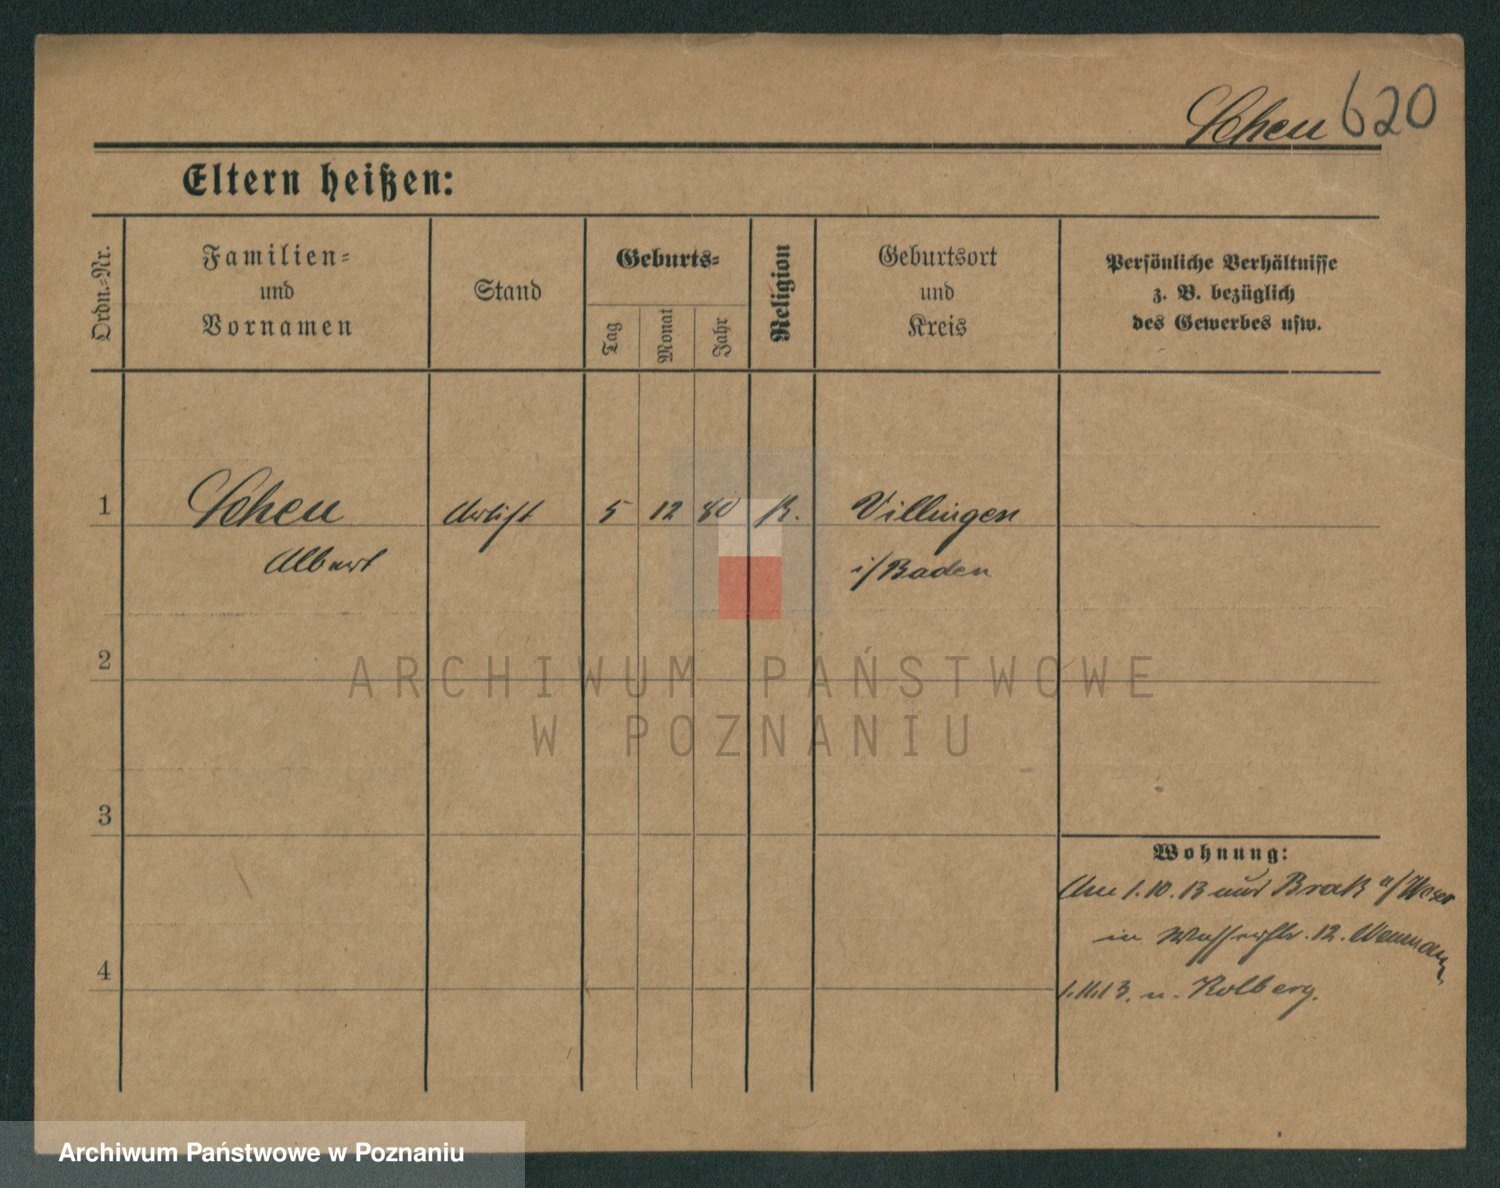 Scheu 620
Eltern heißen:
Ordn.-Nr.
Familien-
und
Vornamen
Stand
Geburts-
Tag
Monat
Jahr
Religion
Geburtsort
und
Kreis
Persönliche Verhältnisse
z. B. bezüglich
des Gewerbes usw.
1 Scheu Artist 5 12 80 K. Villingen
Albert i/Baden
2
ARCHIWUM PAŃSTWOWE
W POZNANIU
3
Wohnung:
1. 10. 13 Brak a/Weser
in 12.
4
1.11.13. n. Kolberg.
Archiwum Państwowe w Poznaniu